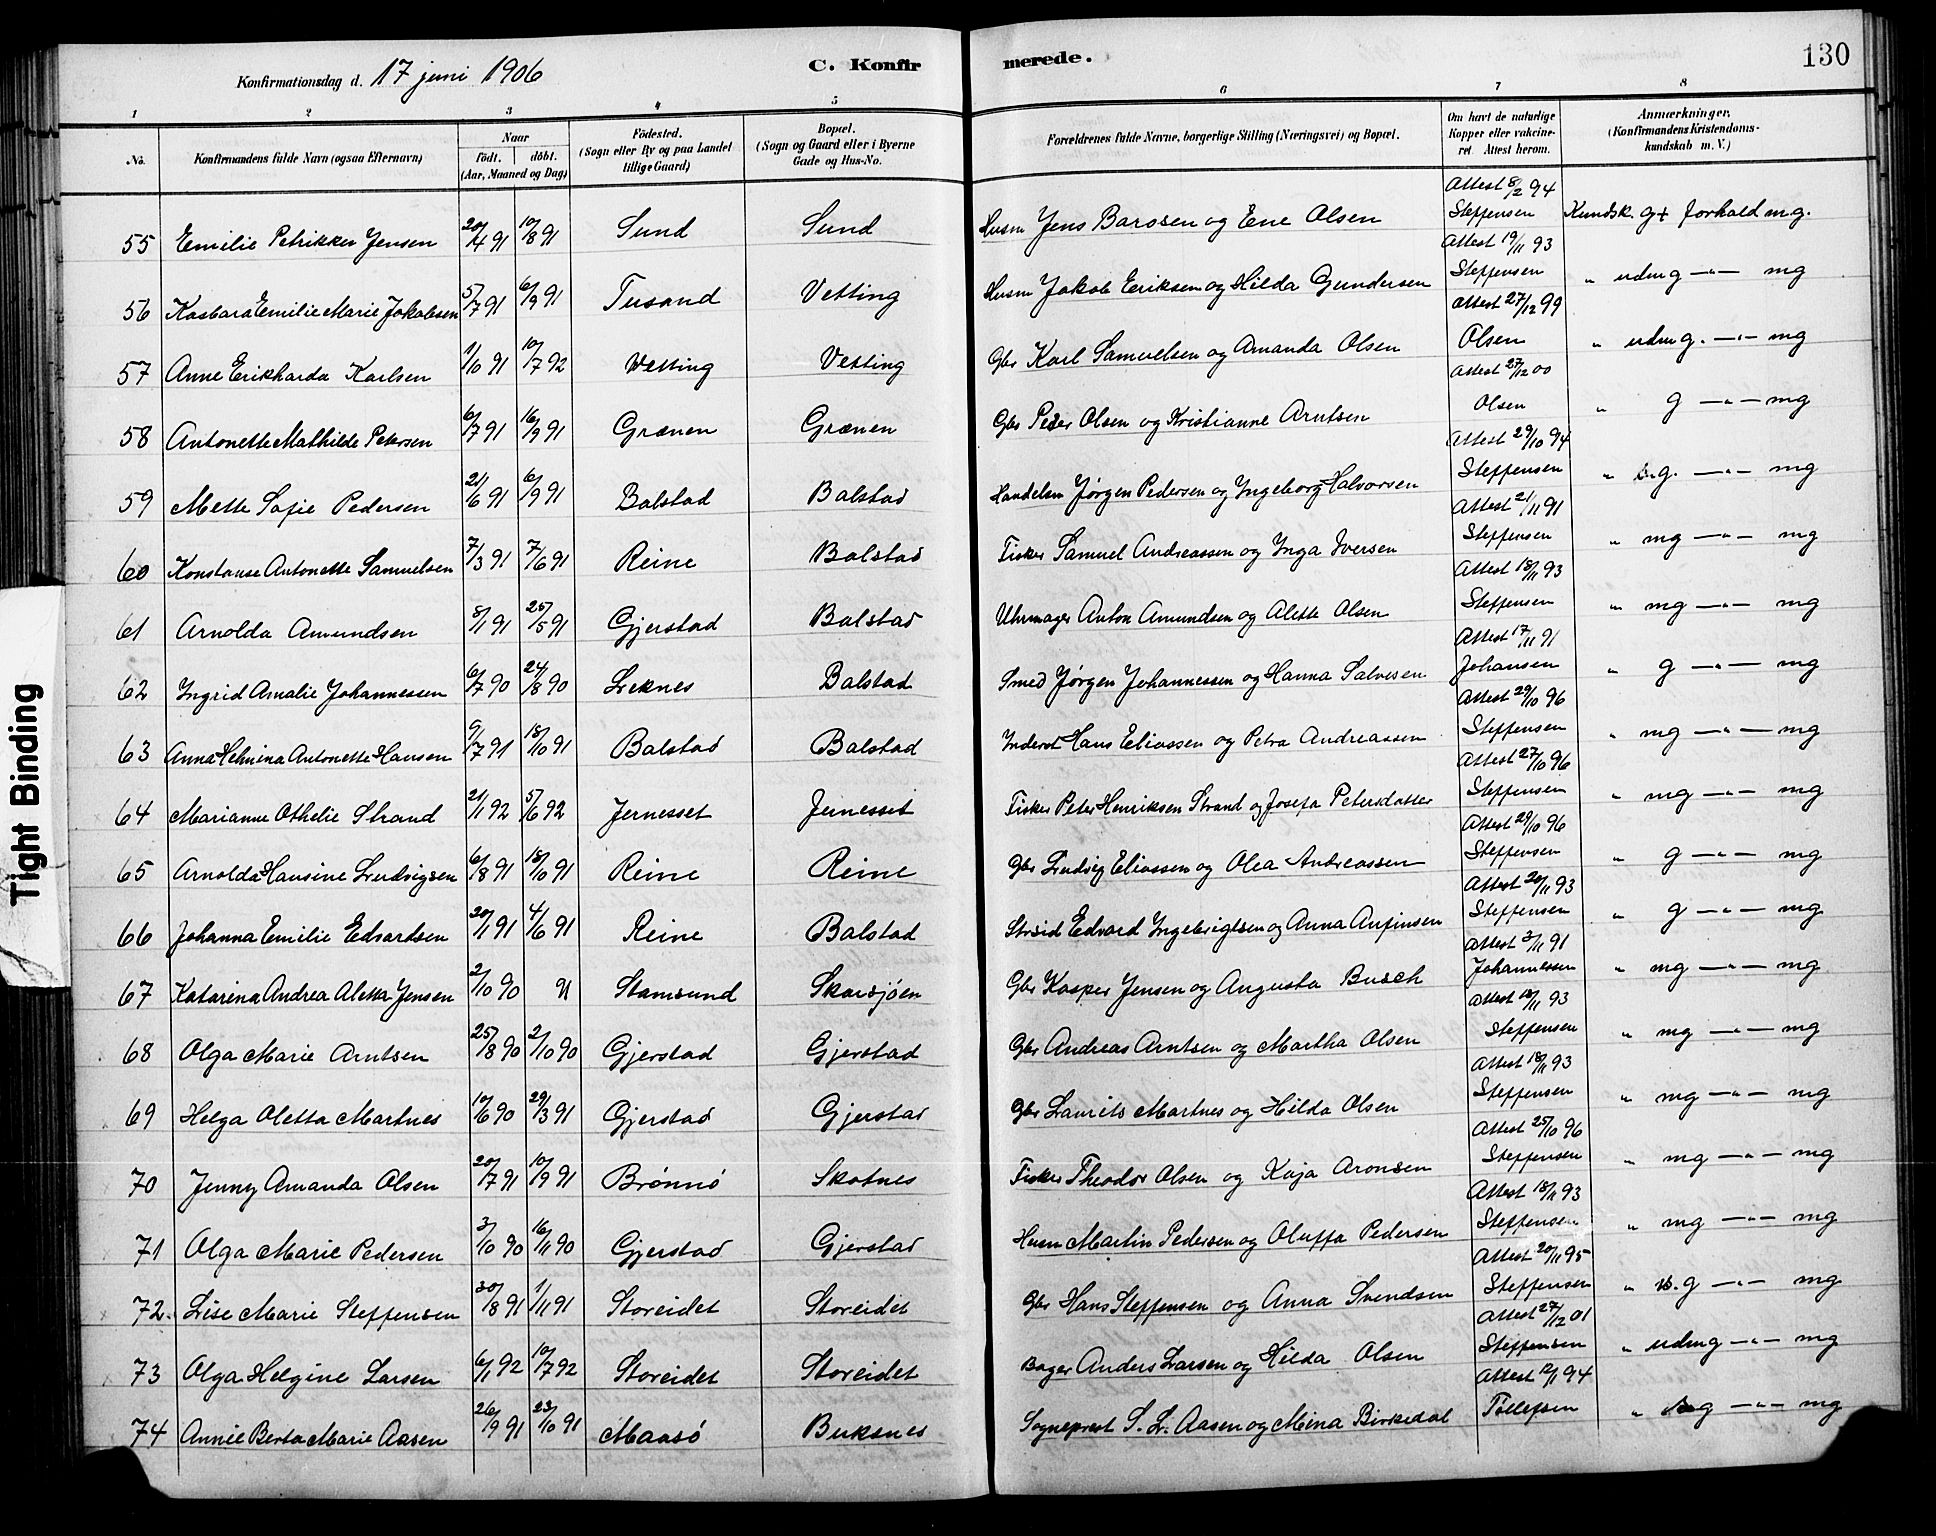 130
Konfirmationsdag d. 17 juni 1906
C. Konfirmerede.
1 2 3 4 5 6 7 8
No. | Konfirmandens fulde Navn (ogsaa Efternavn) | Naar født. døbt. (Aar, Maaned og Dag) | Fødested. (Sogn eller By og paa Landet tillige Gaard) | Bopæl. (Sogn og Gaard eller i Byerne Gade og Hus-No. | Forældrenes fulde Navne, borgerlige Stilling (Næringsvei) og Bopæl. | Om havt de naturlige Kopper eller vakcineret. Attest herom. | Anmærkninger. (Konfirmandens Kristendomskundskab m. V.)
55 Emilie Petrikke Jensen 20/4 91 10/8 91 Sund Sund Husm Jens Barosen og Ene Olsen Attest 8/2 94 Steffensen Kundsk. g+ forhold mg.
56 Kasbara Emilie Marie Jakobsen 5/7 91 6/9 91 Tusand Vetting Husm Jakob Eriksen og Hilda Gundersen Attest 19/11 93 Steffensen " udm g —"— mg
57 Anne Erikharda Karlsen 1/10 91 10/7 92 Vetting Vetting Gbr Karl Samuelsen og Amanda Olsen Attest 27/12 99 Olsen " udm g. —"— mg
58 Antonette Mathilde Petersen 6/7 91 16/9 91 Grænen Grænen Gbr Peder Olsen og Kristianne Arntsen Attest 27/12 00 Olsen " g —"— mg
59 Mette Sofie Pedersen 21/6 91 6/9 91 Balstad Balstad Handelsm Jørgen Pedersen og Ingeborg Halvorsen Attest 29/10 94 Steffensen " s.g. —"— mg
60 Konstanse Antonette Samuelsen 7/3 91 7/6 91 Reine Balstad Fisker Samuel Andreassen og Inga Iversen Attest 21/11 91 Steffensen " mg —"— mg
61 Arnolda Amundsen 8/1 91 25/5 91 Gjerstad Balstad Uhrmager Anton Amundsen og Alette Olsen Attest 18/11 93 Steffensen " mg —"— mg
62 Ingrid Amalie Johannessen 6/7 90 24/8 90 Leknes Balstad Smed Jørgen Johannessen og Hanna Salvesen Attest 17/11 91 Johansen " g —"— mg
63 Anna Helmina Antonette Hansen 9/7 91 18/10 91 Balstad Balstad Inderst Hans Eliassen og Petra Andreassen Attest 29/10 96 Steffensen " mg —"— mg
64 Marianne Othelie Strand 21/1 92 5/6 92 Jernesset Jernesset Fisker Peter Henriksen Strand og Josefa Petersdatter Attest 27/10 96 Steffensen " mg —"— mg
65 Arnolda Hansine Ludvigsen 6/8 91 18/10 91 Reine Reine Gbr Ludvig Eliassen og Olea Andreassen Attest 29/10 96 Steffensen " g —"— mg
66 Johanna Emilie Edvardsen 20/1 91 4/6 91 Reine Balstad Edvard Ingebrigtsen og Anna Anfinsen Attest 20/11 93 Steffensen " g —"— mg
67 Katarina Andrea Aletta Jensen 2/10 90 91 Stamsund Skarsjøen Gbr Kasper Jensen og Augusta Busch Attest 3/11 91 Johannessen " mg —"— mg
68 Olga Marie Arntsen 25/8 90 2/10 90 Gjerstad Gjerstad Gbr Andreas Arntsen og Martha Olsen Attest 18/11 93 Steffensen " mg —"— mg
69 Helga Oletta Martnes 10/6 90 29/3 91 Gjerstad Gjerstad Gbr Laurits Martnes og Hilda Olsen Attest 18/11 93 Steffensen " mg —"— mg
70 Jenny Amanda Olsen 20/7 91 10/9 91 Brønnø Skotnes Fisker Theodor Olsen og Kaja Aronsen Attest 25/10 96 Steffensen " mg —"— mg
71 Olga Marie Pedersen 3/10 90 16/11 90 Gjerstad Gjerstad Husm Martin Pedersen og Oluffa Pedersen Attest 18/11 93 Steffensen " mg —"— mg
72. Lise Marie Steffensen 30/8 91 1/11 91 Storeidet Storeidet Gbr Hans Steffensen og Anna Svendsen Attest 20/11 95 Steffensen " g —"— mg
73 Olga Helgine Larsen 6/1 92 10/7 92 Storeidet Storeidet Bager Anders Larsen og Hilda Olsen Attest 27/12 01 Steffensen " udm g —"— mg
74 Annie Berta Marie Aasen 26/9 91 23/10 91 Maasø Buksnes Sogneprest S. L. Aasen og Mina Birkedal Attest 12/1 94 Tollefsen " g —"— mg
Tight Binding